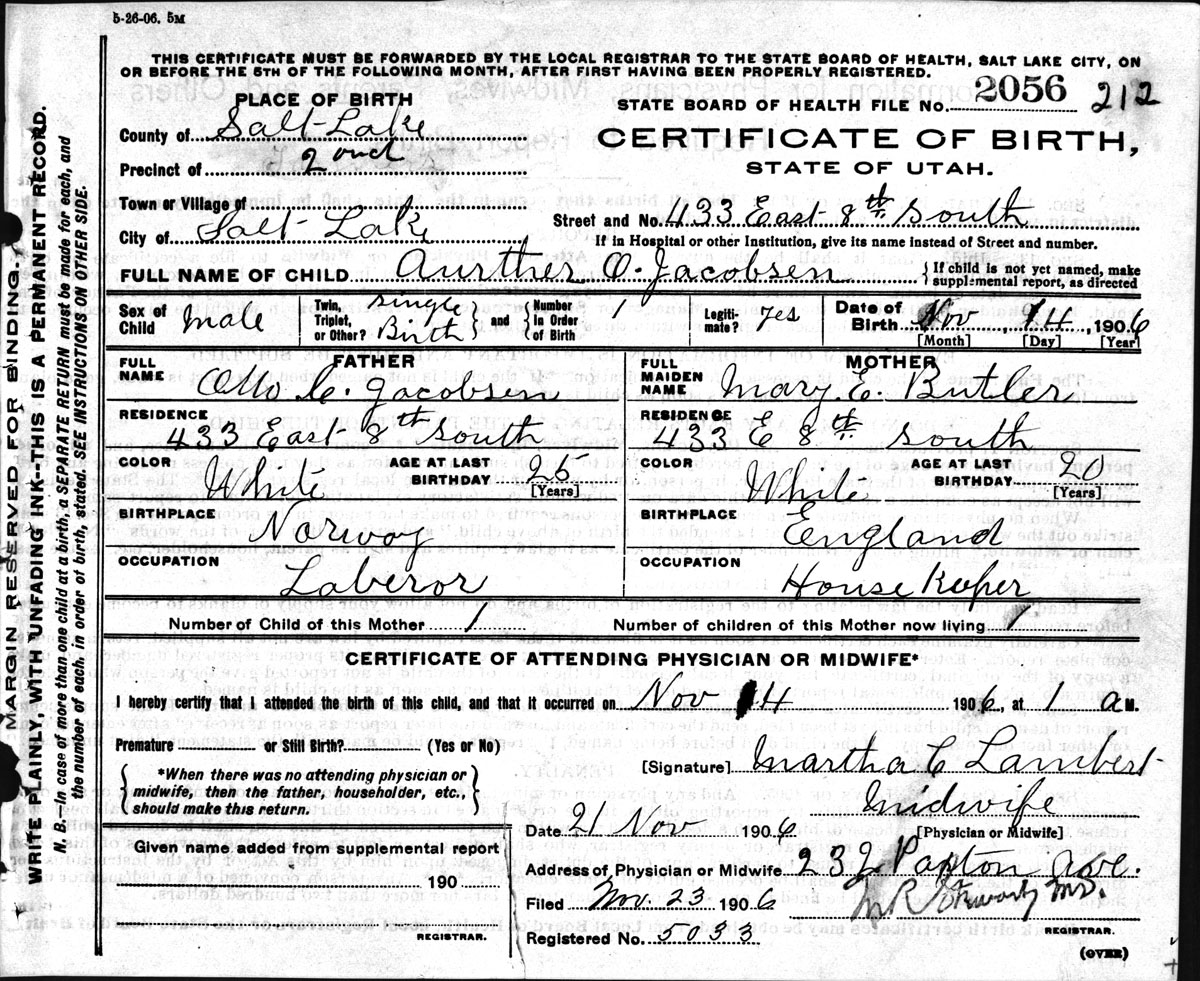 5-26-06. 5M
THIS CERTIFICATE MUST BE FORWARDED BY THE LOCAL REGISTRAR TO THE STATE BOARD OF HEALTH, SALT LAKE CITY, ON
OR BEFORE THE 5TH OF THE FOLLOWING MONTH, AFTER FIRST HAVING BEEN PROPERLY REGISTERED.
PLACE OF BIRTH
STATE BOARD OF HEALTH FILE No. 2056 212
County of Salt Lake
CERTIFICATE OF BIRTH,
Precinct of 2ond
STATE OF UTAH.
Town or Village of
City of Salt Lake
Street and No. 433 East 8th South
If in Hospital or other Institution, give its name instead of Street and number.
FULL NAME OF CHILD Aurther O. Jacobsen
If child is not yet named, make
supplemental report, as directed
Sex of Child male
Twin, Triplet, or Other? Single Birth and Number In Order of Birth 1
Legitimate? yes
Date of Birth Nov 14, 1906
[Month] [Day] [Year]
FATHER
FULL NAME Otto C. Jacobsen
RESIDENCE
433 East 8th South
COLOR White AGE AT LAST BIRTHDAY 25
[Years]
BIRTHPLACE
Norway
OCCUPATION
Laberor
MOTHER
FULL MAIDEN NAME Mary E. Butler
RESIDENCE
433 E 8th South
COLOR White AGE AT LAST BIRTHDAY 20
[Years]
BIRTHPLACE
England
OCCUPATION
House Keeper
Number of Child of this Mother 1 Number of children of this Mother now living 1
CERTIFICATE OF ATTENDING PHYSICIAN OR MIDWIFE*
I hereby certify that I attended the birth of this child, and that it occurred on Nov 14 1906, at 1 a M.
Premature or Still Birth? (Yes or No)
[Signature] Martha C Lambert
*When there was no attending physician or
midwife, then the father, householder, etc.,
should make this return.
Midwife
[Physician or Midwife]
Date 21 Nov 1906
Given name added from supplemental report
190
REGISTRAR.
Address of Physician or Midwife 232 Ave.
Filed Nov. 23 1906
M R Stewart MD.
Registered No. 5033
REGISTRAR.
(OVER)
MARGIN RESERVED FOR BINDING.
WRITE PLAINLY, WITH UNFADING INK--THIS IS A PERMANENT RECORD.
N. B.—In case of more than one child at a birth, a SEPARATE RETURN must be made for each, and
the number of each, in order of birth, stated. SEE INSTRUCTIONS ON OTHER SIDE.